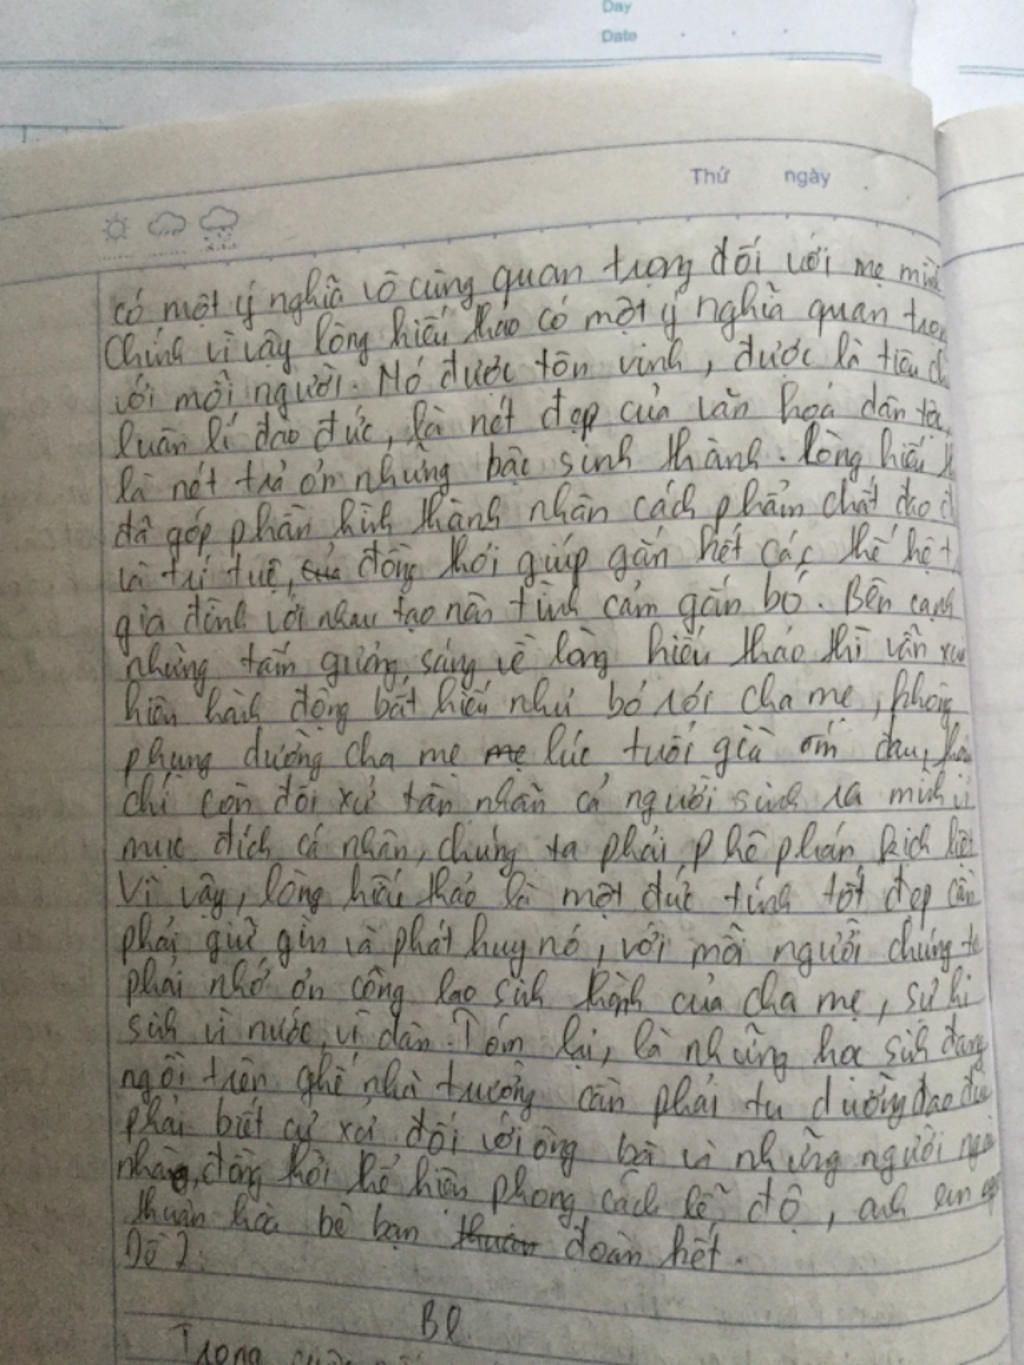 Day
Date
Thứ ngày
có một ý nghĩa vô cùng quan trọng đối với mẹ mình
Chính vì vậy lòng hiếu thảo có một ý nghĩa quan trọn
với mỗi người. Nó được tôn vinh, được là tiêu ch
luân lí đạo đức, là nét đẹp của văn hoá dân tộ
là nét trả ơn những bậc sinh thành. lòng hiếu th
đã góp phần hình thành nhân cách phẩm chất đạo đ
và trí tuệ, đồng thời giúp gắn kết các thế hệ t
gia đình với nhau tạo nên tình cảm gắn bó. Bên cạnh
những tấm gương sáng về lòng hiếu thảo thì vẫn xu
hiện hành động bất hiếu như bỏ rơi cha mẹ, không
phụng dưỡng cha mẹ mẹ lúc tuổi già ốm đau,
chí còn đối xử tàn nhẫn cả người sinh ra mình vì
mục đích cá nhân, chúng ta phải phê phán kịch liệt
Vì vậy, lòng hiếu thảo là một đức tính tốt đẹp cần
phải giữ gìn và phát huy nó, với mỗi người chúng ta
phải nhớ ơn công lao sinh thành của cha mẹ, sự hi
sinh vì nước, vì dân. Tóm lại, là những học sinh đang
ngồi trên ghế nhà trường cần phải tu dưỡng đạo đức
phải biết cư xử đối với ông bà và những người
đồng thời thể hiện phong cách lễ độ, anh em
thuận hòa bè bạn đoàn kết.
Đề 2:
BL
Trong cuộc